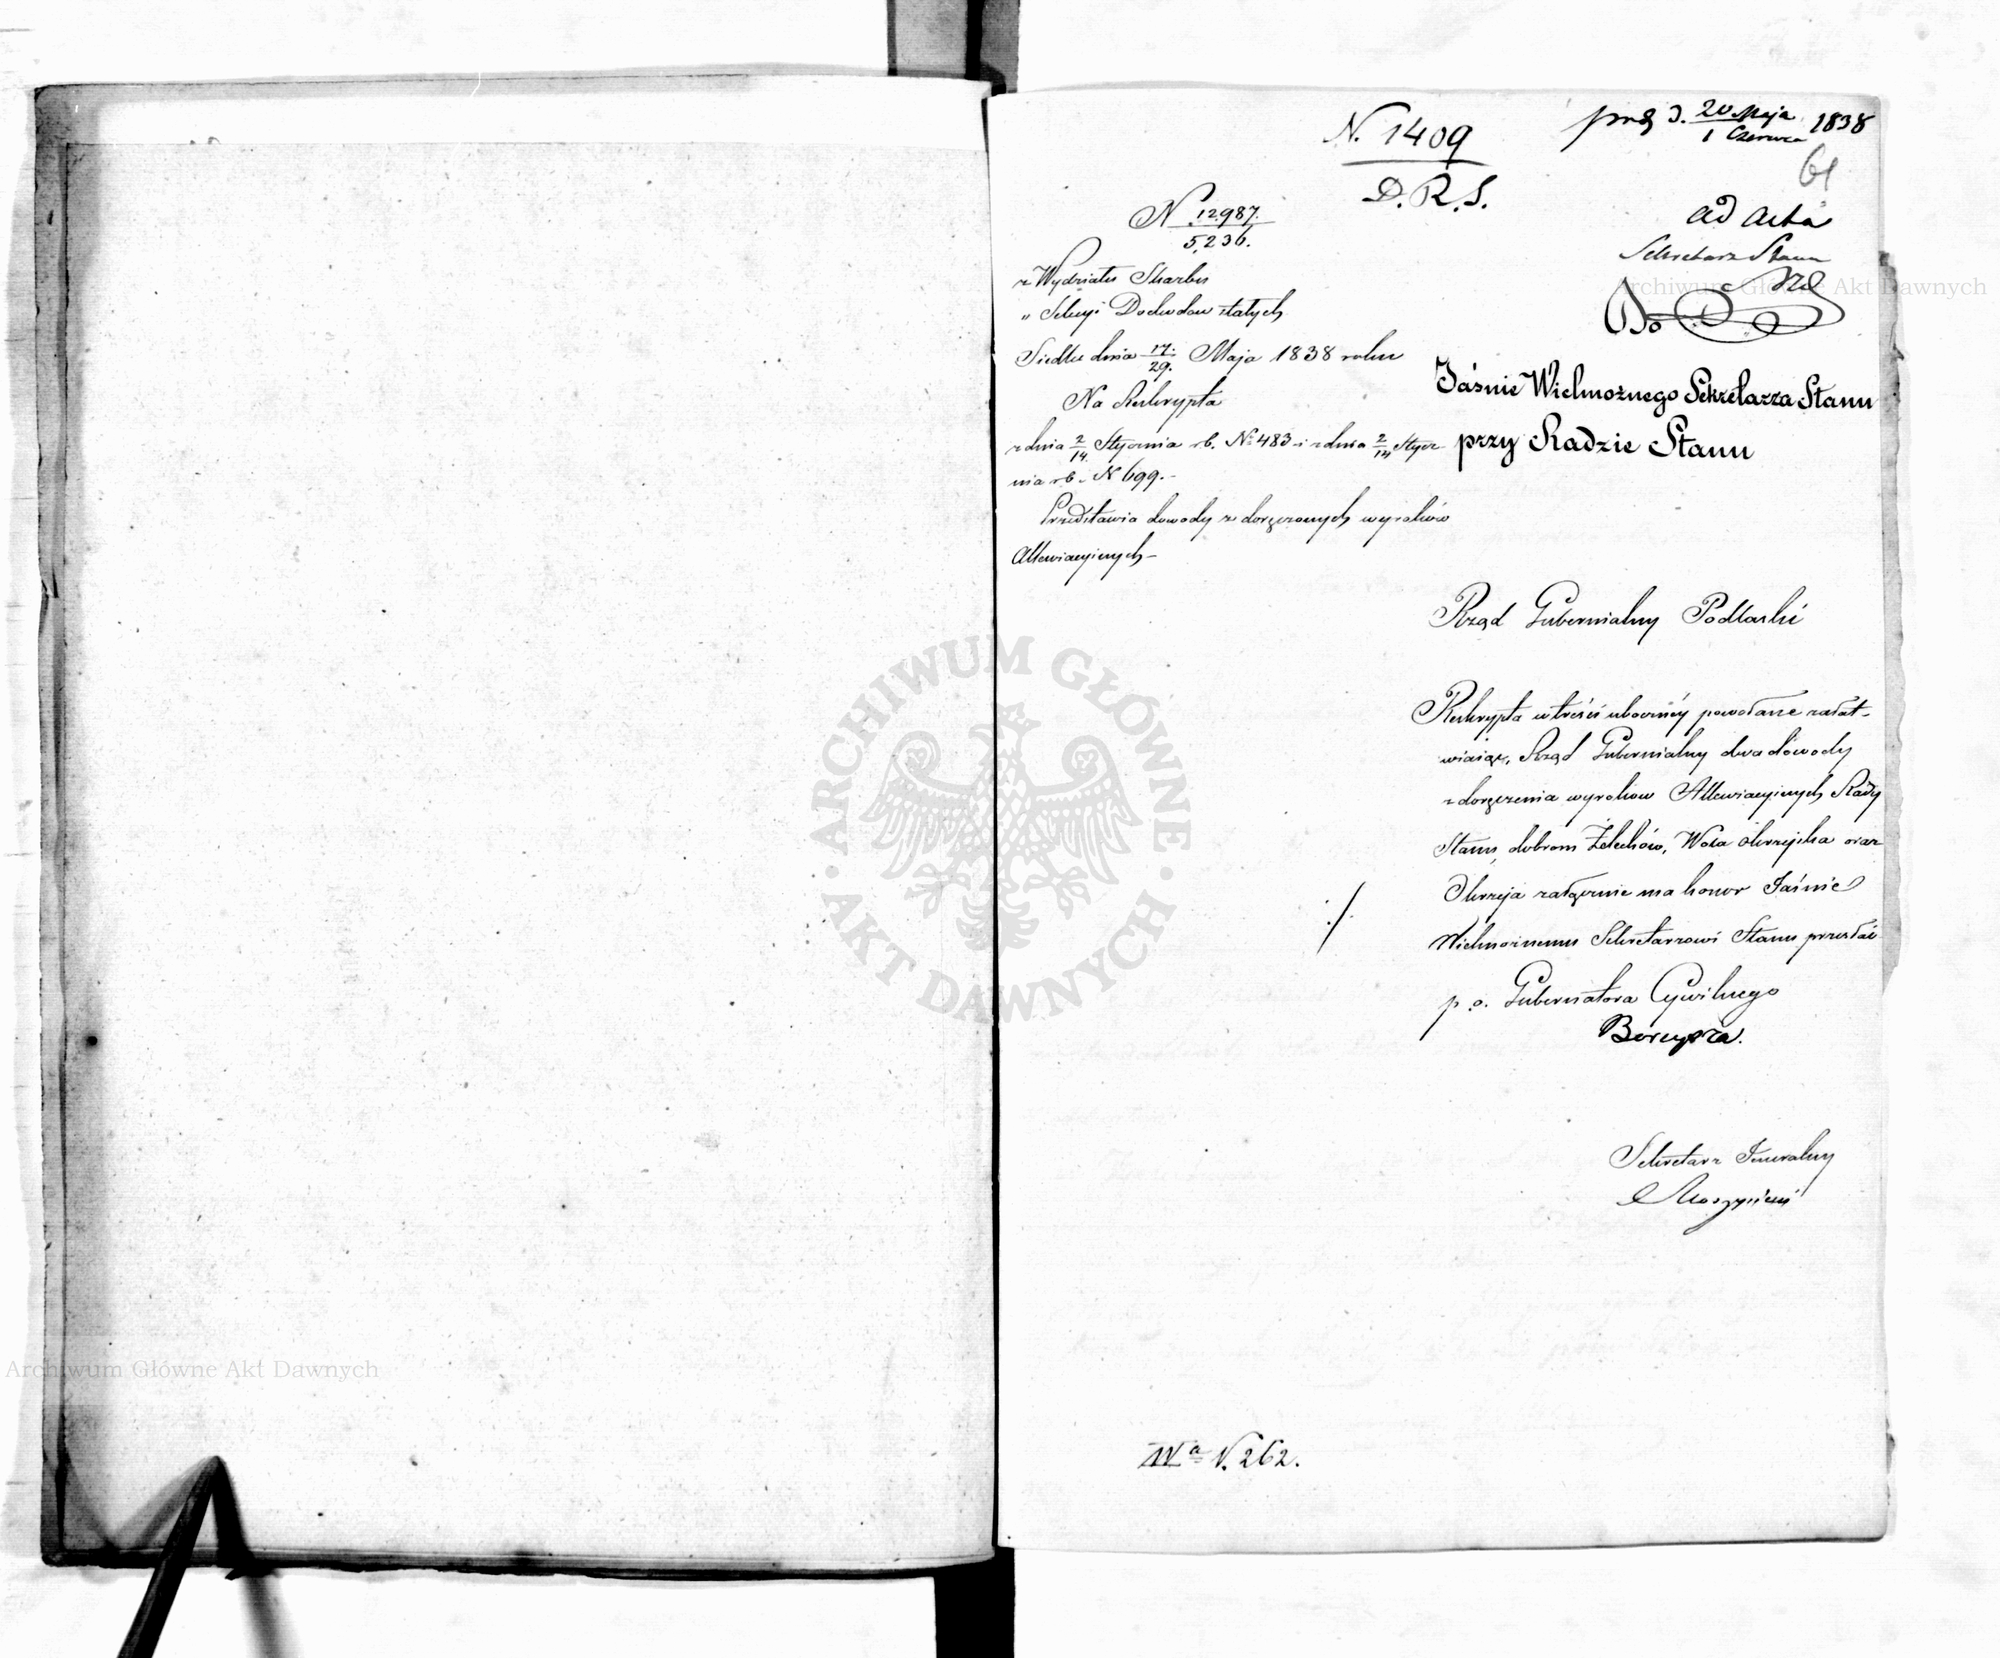 N. 1409
D. R. S.
prez d. 20 Maja 1838
1 Czerwca
61
ad acta
Sekretarz Stanu
N 12987.
5,236.
z Wydziału Skarbu
" Sekcyi Dochodow stałych
Siedlce dnia 17./29. Maja 1838 roku
Na Reskrypta
z dnia 2/14 Stycznia rb. No 483 i z dnia 2/14 Stycz
nia rb. N 699.-
Przedstawia dowody z doręczonych wyroków
Allewiacyinych-
Jaśnie Wielmożnego Sekretarza Stanu
przy Radzie Stanu
Rząd Gubernialny Podlaski
Reskrypta w treści uboczney powołane załat-
wiaiąc, Rząd Gubernialny dwa dowody
z doręczenia wyroków Allewiacyinych Rady
Stanu, dobrom Żelechów, Wola okrzejska oraz
Okrzeja załącznie ma honor Jaśnie
Wielmożnemu Sekretarzowi Stanu przesłać
p. o. Gubernatora Cywilnego
Sekretarz Jeneralny
IVa N. 262.
ARCHIWUM GŁÓWNE
AKT DAWNYCH
Archiwum Główne Akt Dawnych
Archiwum Główne Akt Dawnych